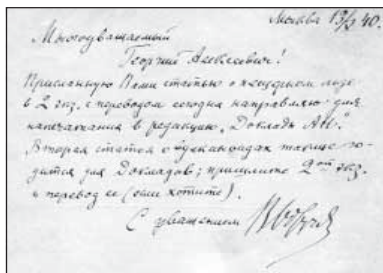 Москва 13/I 40.
Многоуважаемый
Георгий Алексеевич!
Присланную Вами статью о ледe
в 2 экз. с переводом сегодня направляю для
напечатания в редакцию „Доклады АН“.
Вторая статья о также го-
дится для Докладов; пришлите 2ой экз.
и перевод ее (если хотите).
С уважением